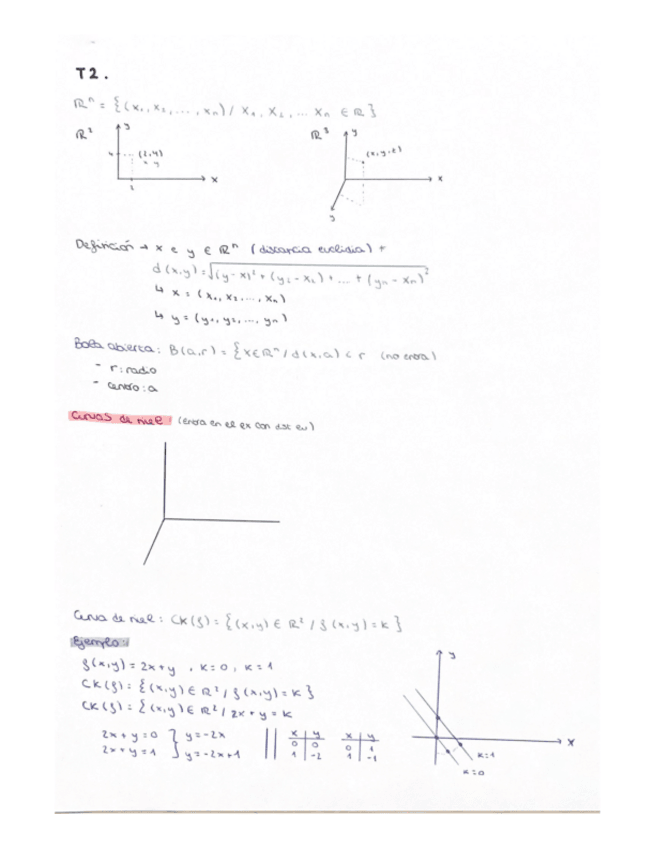 T2.
ℝⁿ = {(x₁, x₂, ..., xₙ) / x₁, x₂, ... xₙ ∈ ℝ}
ℝ² y
4 (2,4)
x y
2 x
ℝ³ y
(x,y,z)
x
Definición → x e y ∈ ℝⁿ (distancia euclidia)
d(x,y) = √(y-x)² + (y₂-x₂) + ... + (yₙ-xₙ)²
↳ x = (x₁, x₂, ..., xₙ)
↳ y = (y₁, y₂, ..., yₙ)
Bola abierta: B(a,r) = {x∈ℝⁿ / d(x,a) < r (no entra)
- r: radio
- centro: a
Curvas de nivel: (entra en el ex con dist eu)
Curva de nivel: CK(f) = {(x,y) ∈ ℝ² / f(x,y) = k}
Ejemplo:
f(x,y) = 2x+y , k=0, k=1
CK(f) = {(x,y) ∈ ℝ² / f(x,y) = k}
CK(f) = {(x,y) ∈ ℝ² / 2x+y = k
2x+y=0 } y=-2x || x y x y
2x+y=1 } y=-2x+1 0 0 0 1
1 -2 1 -1
y
x
k=1
k=0